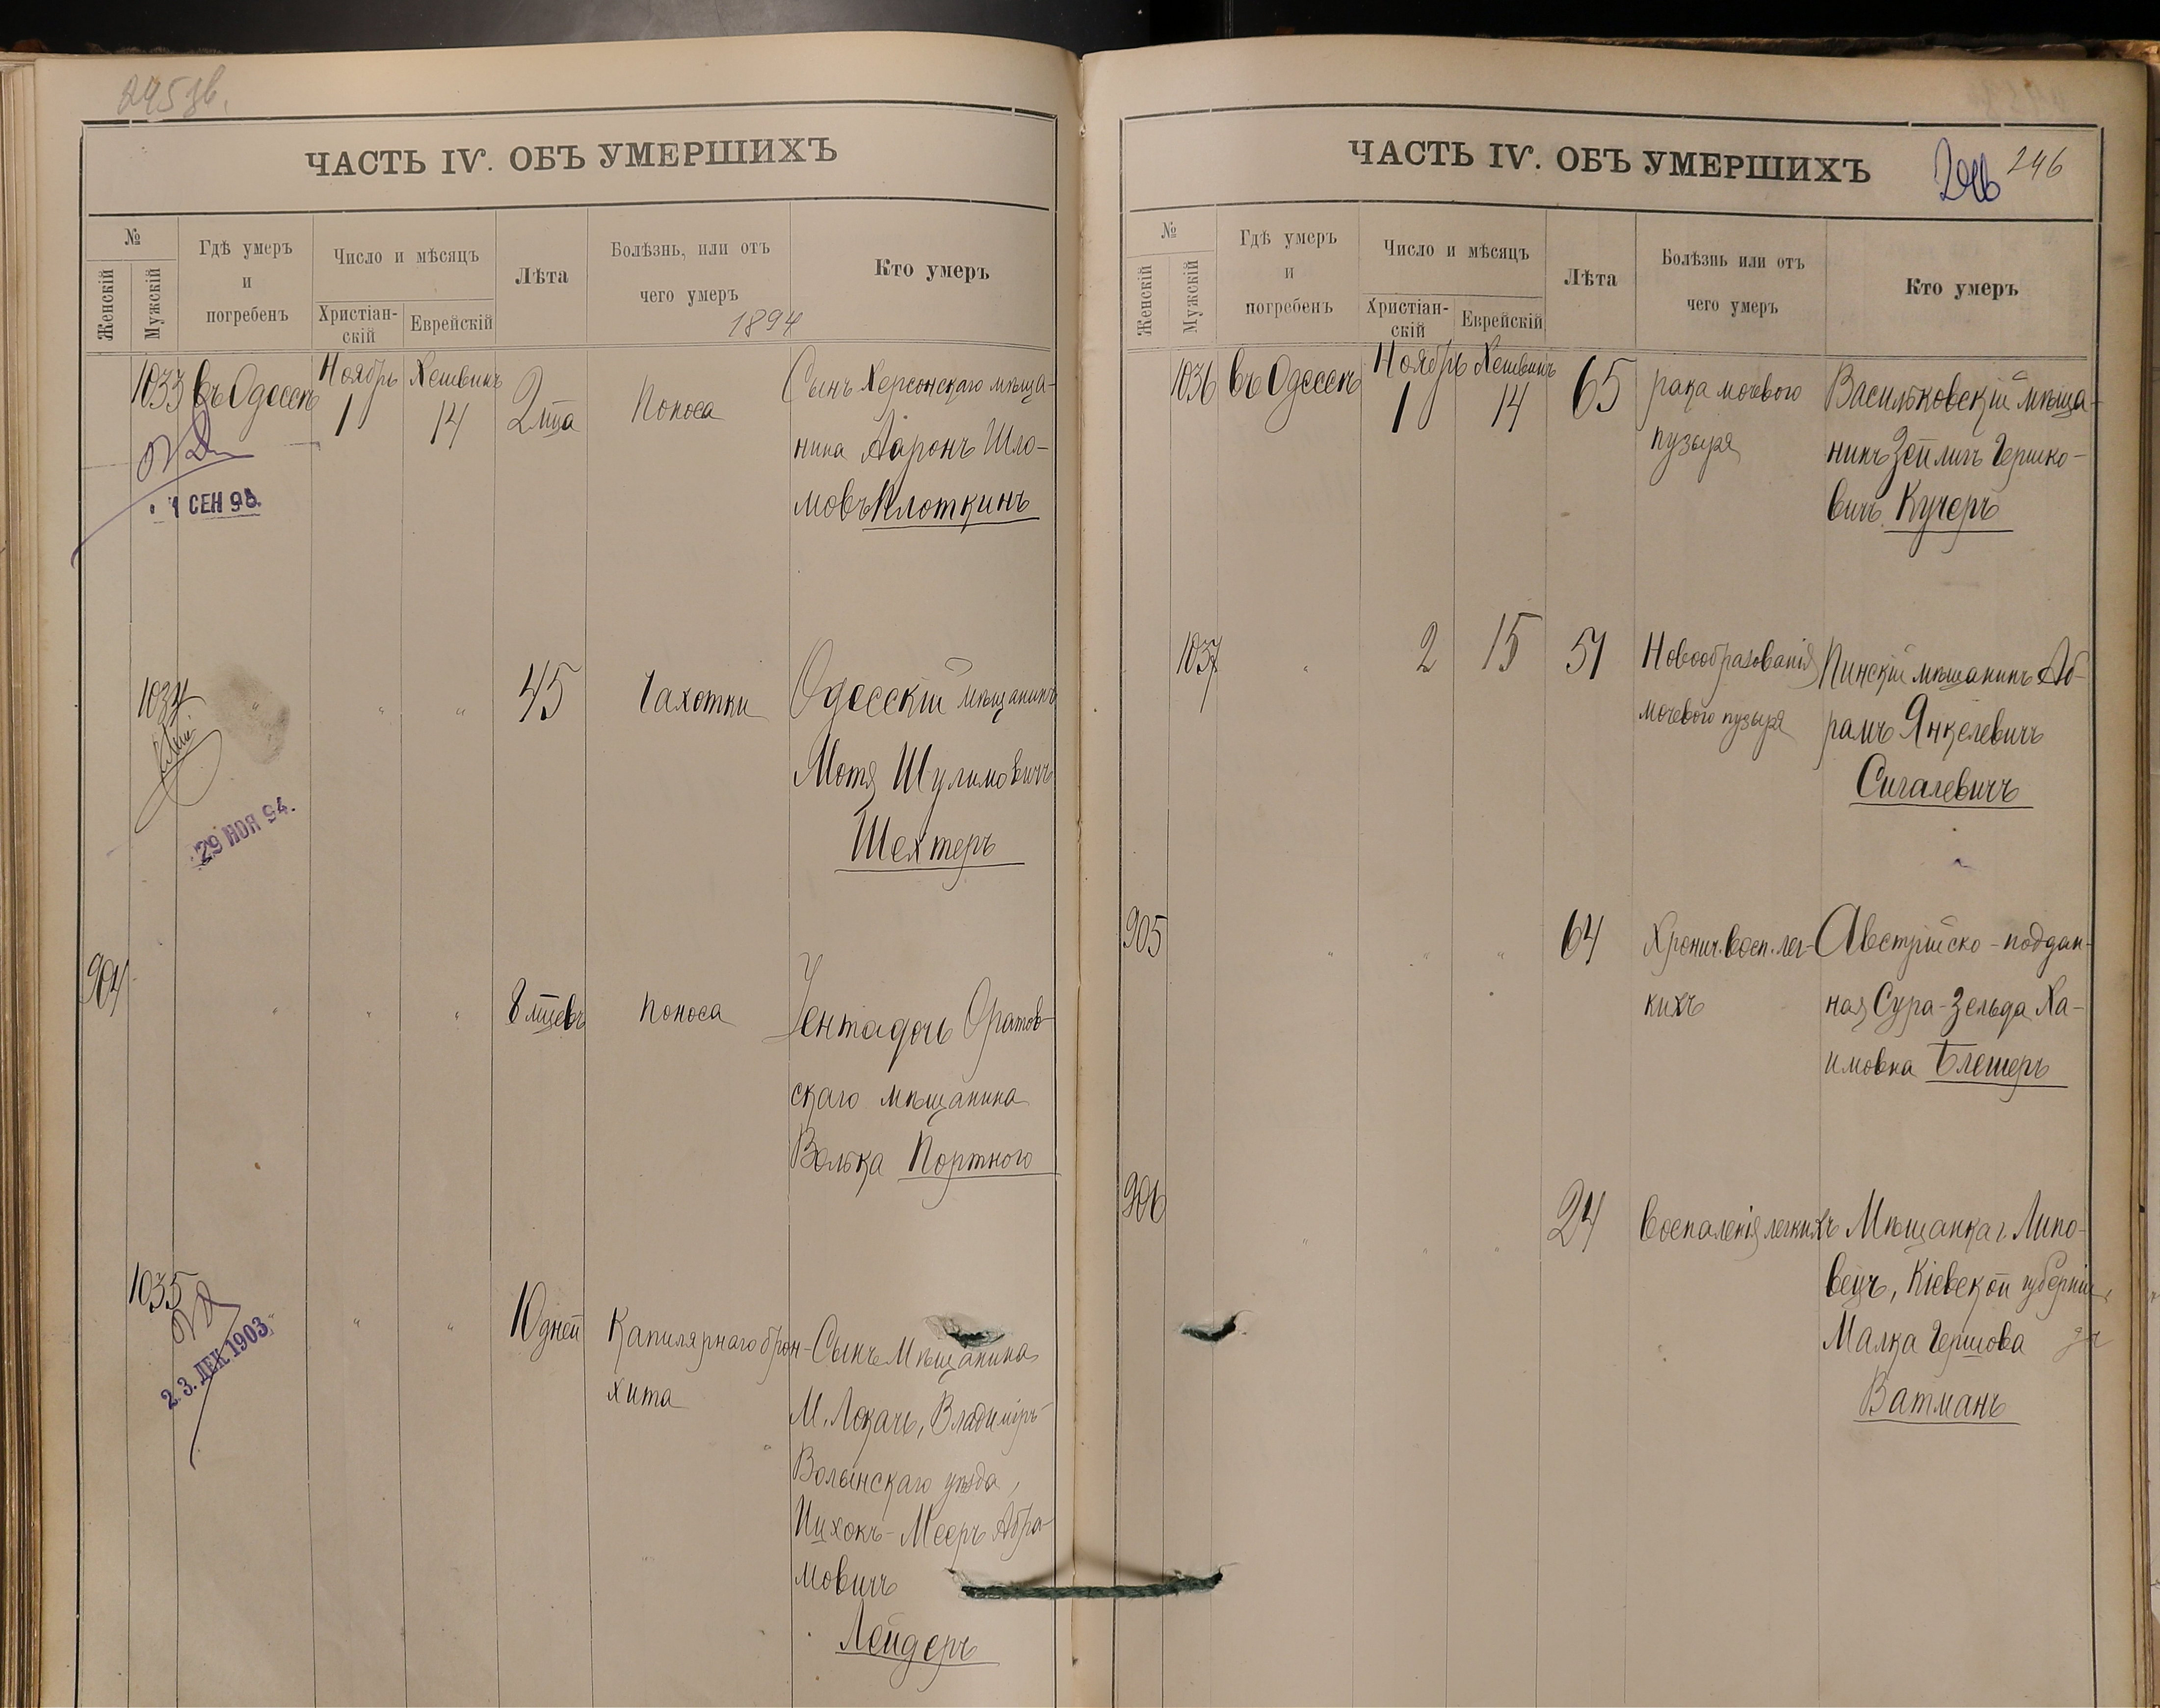 245 зв.
ЧАСТЬ IV. ОБЪ УМЕРШИХЪ
№
Женскій
Мужскій
Гдѣ умеръ
и
погребенъ
Число и мѣсяцъ
Христіан-
скій
Еврейскій
Лѣта
Болѣзнь, или отъ
чего умеръ
1894
Кто умеръ
1033 въ Одессѣ Ноябрь 1 Хешвинъ 14 2 мца Поноса Сынъ Херсонскаго мѣща-
нина Ааронъ Шло-
мовъ Плоткинъ
1 СЕН 98.
1034 " " " 45 Чахотки Одесскій мѣщанинъ
Мотя Шулимовичъ
Шехтеръ
29 НОЯ 94.
904 " " " 8 мцевъ Поноса Ентадочь Оратов-
скаго мѣщанина
Волька Портного
1035 " " " 10 дней Капилярнаго брон-
хита
Сынъ Мѣщанина
М. Локачъ, Владимиръ-
Волынскаго уѣзда,
Ицхокъ-Мееръ Абра-
мовичъ
Лейдеръ
23 ДЕК 1903
ЧАСТЬ IV. ОБЪ УМЕРШИХЪ
246
246
№
Женскій
Мужскій
Гдѣ умеръ
и
погребенъ
Число и мѣсяцъ
Христіан-
скій
Еврейскій
Лѣта
Болѣзнь или отъ
чего умеръ
Кто умеръ
1036 въ Одессѣ Ноябрь 1 Хешвинъ 14 65 рака мочевого
пузыря
Васильковскій мѣща-
нинъ Зейлигъ Гершко-
вичъ Кучеръ
1037 " 2 15 51 Новообразованія
мочевого пузыря
Пинскій мѣщанинъ Аб-
рамъ Янкелевичъ
Сигалевичъ
905 " " " 64 Хронич. восп. лег-
кихъ
Австрійско-поддан-
ная Сура-Зельда Ха-
имовна Блешеръ
906 " " " 24 Воспаленія легкихъ Мѣщанка г. Липо-
вецъ, Кіевской губерніи,
Малка Гершова
Ватманъ